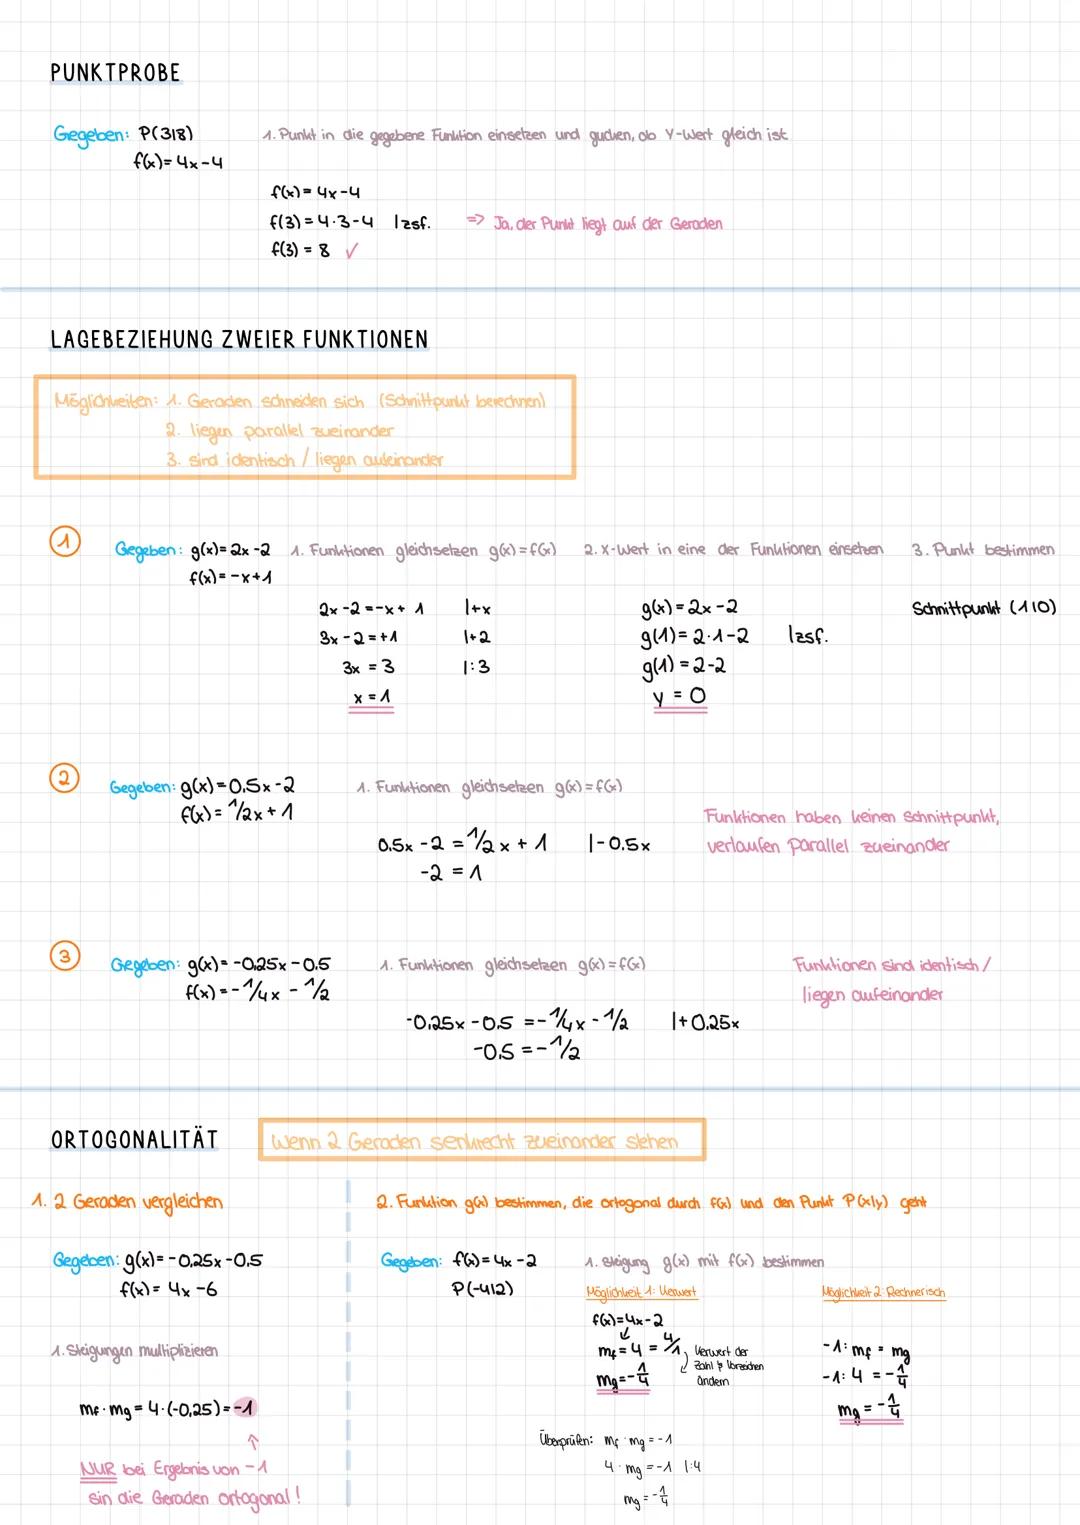 PUNKTPROBE
Gegeben: P(3|8)
f(x)= 4x-4
1. Punkt in die gegebene Funktion einsetzen und gucken, ob Y-Wert gleich ist
f(x) = 4x-4
f(3) = 4·3-4 |zsf.
f(3) = 8 ✓
=> Ja, der Punkt liegt auf der Geraden
LAGEBEZIEHUNG ZWEIER FUNKTIONEN
Möglichkeiten: 1. Geraden schneiden sich (Schnittpunkt berechnen)
2. liegen parallel zueinander
3. sind identisch / liegen aufeinander
1
Gegeben: g(x)= 2x-2
f(x)= -x+1
1. Funktionen gleichsetzen g(x)=f(x)
2x-2=-x+1 |+x
3x-2=+1 |+2
3x = 3 |:3
x = 1
2. X-Wert in eine der Funktionen einsetzen
g(x) = 2x-2
g(1) = 2·1-2 |zsf.
g(1) = 2-2
y = 0
3. Punkt bestimmen
Schnittpunkt (1|0)
2
Gegeben: g(x)=0,5x-2
f(x)= 1/2x+1
1. Funktionen gleichsetzen g(x)=f(x)
0,5x-2 = 1/2x+1 |-0,5x
-2 = 1
Funktionen haben keinen Schnittpunkt,
verlaufen Parallel zueinander
3
Gegeben: g(x)= -0,25x-0,5
f(x) = -1/4x - 1/2
1. Funktionen gleichsetzen g(x)=f(x)
-0,25x-0,5 = -1/4x-1/2 |+0,25x
-0,5 = -1/2
Funktionen sind identisch /
liegen aufeinander
ORTOGONALITÄT
Wenn 2 Geraden senkrecht zueinander stehen
1. 2 Geraden vergleichen
Gegeben: g(x)= -0,25x-0,5
f(x)= 4x-6
1. Steigungen multiplizieren
mf·mg = 4·(-0,25)=-1
↑
NUR bei Ergebnis von -1
sin die Geraden ortogonal!
2. Funktion g(x) bestimmen, die ortogonal durch f(x) und den Punkt P(x|y) geht
Gegeben: f(x)=4x-2
P(-4|2)
1. Steigung g(x) mit f(x) bestimmen
Möglichkeit 1: Kerwert
f(x)=4x-2
mf=4 = 4/1
mg=-1/4
Kerwert der
Zahl & Vorzeichen
ändern
Möglichkeit 2: Rechnerisch
-1: mf = mg
-1: 4 = -1/4
mg = -1/4
Überprüfen: mf · mg = -1
4 · mg = -1 |:4
mg = -1/4